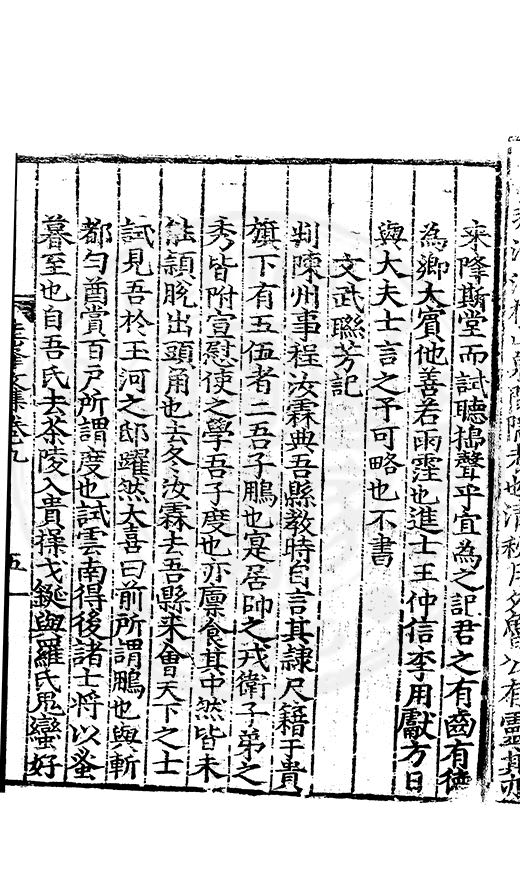 来降斯堂而試聽搗聲乎宜為之記君之有齒有德
為鄉大賔他善若雨霪也進士王仲信李用獻方日
與大夫士言之予可略也不書
文武聯芳記
判陳州事程汝霖典吾縣教時自言其隷尺籍于貴
旗下有五伍者二吾子鵬也寔居帥之戎衛子弟之
秀皆附宣慰使之學吾子度也亦廪食其中然皆未
能頴脫出頭角也去冬汝霖去吾縣来會天下之士
試見吾於玉河之邸躍然大喜曰前所謂鵬也與斬
都勻酋賞百戶所謂度也試雲南得後諸士將以蚤
暮至也自吾氏去茶陵入貴操戈鋋與羅氏鬼蠻好
文集卷九
五